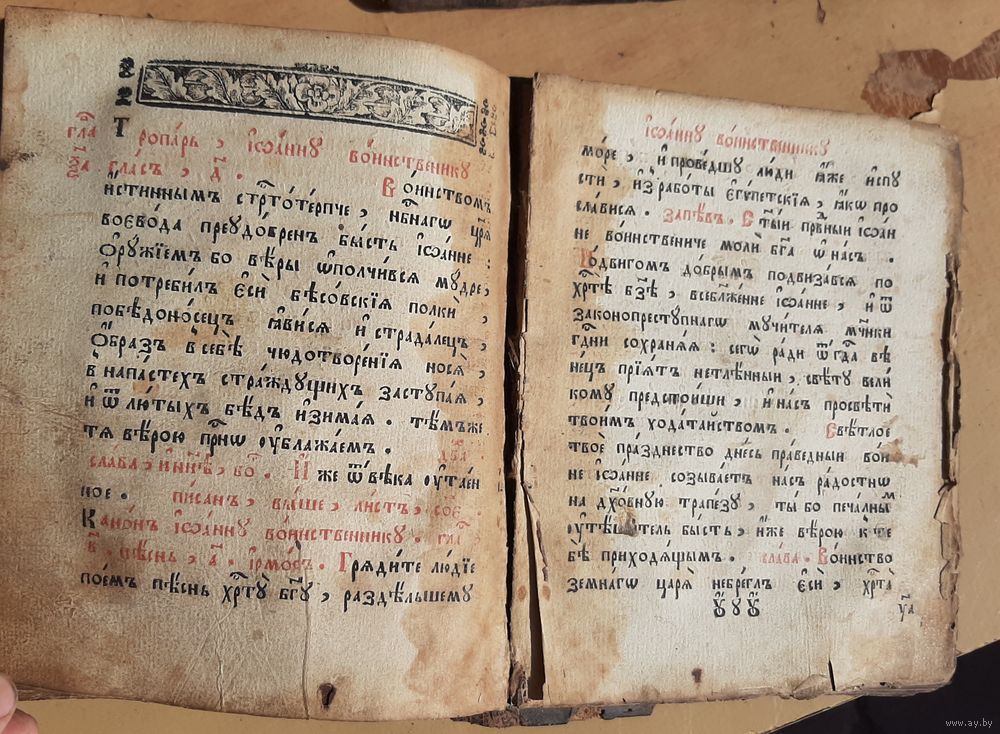 Тропа́рь , і҆ѡа́нну во́инственнику
гла́съ , д҃ . Во́инствомъ
и҆́стиннымъ стрⷭ҇тоте́рпче , нбⷭ҇нагѡ цр҃ѧ̀
воево́да преудо́бренъ бы́сть і҆ѡа́нне :
ѻ҆рꙋ́жїемъ бо вѣ́ры ѡ҆полчи́всѧ мꙋ́дре ,
и҆ потреби́лъ є҆сѝ бѣсо́вскїѧ полкѝ ,
побѣдоно́сецъ ꙗ҆ви́сѧ и҆ страда́лецъ ,
ѻ҆́бразъ в себѣ̀ чюдотворе́нїѧ носѧ̀ ,
в напа́стехъ стра́ждꙋщихъ застꙋпа́ѧ ,
и҆ ѿ лю́тыхъ бѣ́дъ и҆зима́ѧ . тѣ́мъ же
тѧ вѣ́рою прⷭ҇нѡ ᲂу҆блажа́емъ .
сла́ва , и҆ ны́нѣ , бо҃ . И҆́же ѿ вѣ́ка ᲂу҆таен
ное . пи́санъ , вы́ше , ли́стъ , сое҃ .
Кано́нъ і҆ѡа́ннꙋ во́инственникꙋ . гла́
в҃ . пѣ́снь , а҃ . і҆рмо́съ . Грѧди́те лю́дїе
пое́мъ пѣ́снь хрⷭ҇тꙋ̀ бг҃ꙋ , раздѣ́льшемꙋ
і҆ѡа́ннꙋ во́инственникꙋ
мо́ре , и҆ прове́дшꙋ лю́ди ꙗ҆̀же и҆спꙋ
стѝ , и҆з рабо́ты є҆гѵ́петскїѧ , ꙗ҆́кѡ про
сла́висѧ . запѣ́въ . Ст҃ы́и пра́вⷣныи і҆ѡа́н
не во́инственниче молѝ бг҃а ѡ҆ на́съ .
По́двигомъ до́брымъ подвиза́всѧ по
хрⷭ҇тѣ̀ бз҃ѣ , всеблаже́нне і҆ѡа́нне , и҆ ѿ
законопрестꙋ́пнагѡ мꙋчи́телѧ мч҃нки
гдⷭ҇ни сохранѧ́ѧ : сегѡ̀ ра́ди ѿ гдⷭ҇а вѣ
не́цъ прїѧ́тъ нетлѣ́нныи , свѣ́тꙋ вели́
комꙋ предстои́ши , и҆ на́съ просвѣтѝ
твои́мъ хода́таиствомъ . Свѣ́тлое
твоѐ пра́зднество дне́сь пра́ведныи вои
не і҆ѡа́нне созыва́етъ на́съ ра́достнѡ
на дх҃о́внꙋю трапе́зꙋ , ты́ бо печа́льным
ᲂу҆тѣ́шитель бы́сть , и҆́же вѣ́рою к те
бѣ̀ приходѧ́щымъ . сла́ва . Во́инство
земна́гѡ царѧ̀ небре́глъ є҆сѝ , хрⷭ҇та̀
www.ay.by